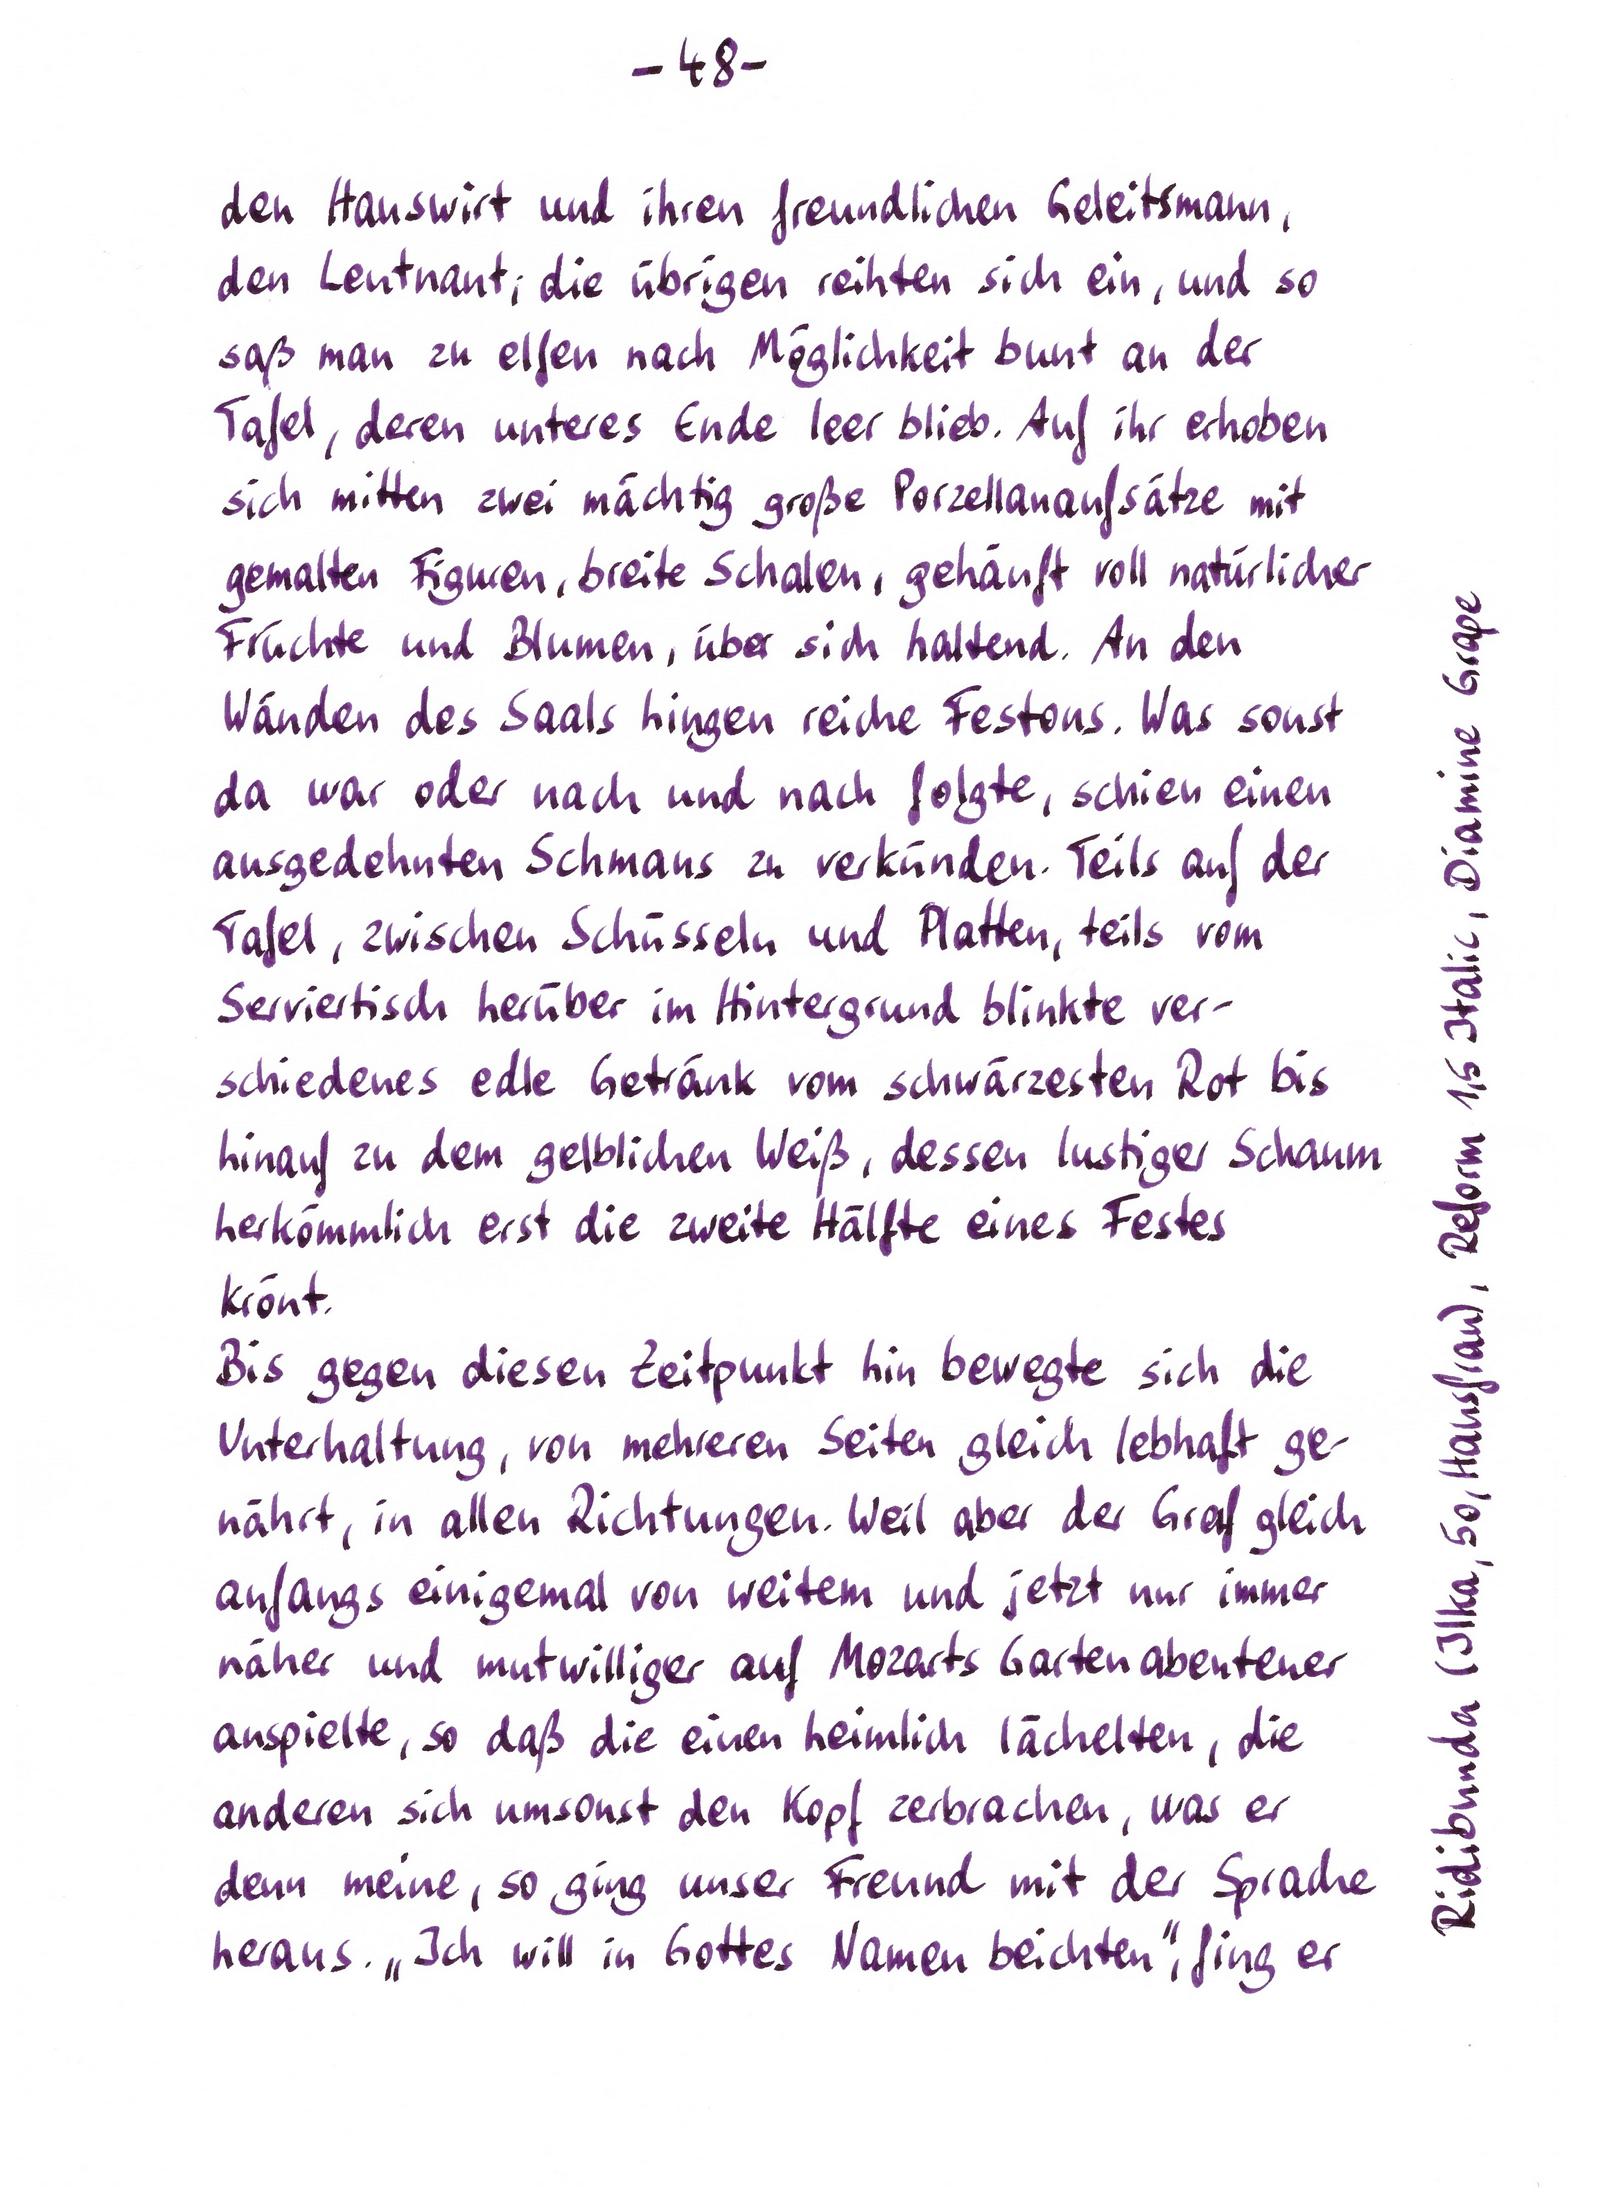 - 48 -
den Hauswirt und ihren freundlichen Geleitsmann,
den Leutnant; die übrigen reihten sich ein, und so
saß man zu elfen nach Möglichkeit bunt an der
Tafel, deren unteres Ende leer blieb. Auf ihr erhoben
sich mitten zwei mächtig große Porzellanaufsätze mit
gemalten Figuren, breite Schalen, gehäuft voll natürlicher
Früchte und Blumen, über sich haltend. An den
Wänden des Saals hingen reiche Festons. Was sonst
da war oder nach und nach folgte, schien einen
ausgedehnten Schmaus zu verkünden. Teils auf der
Tafel, zwischen Schüsseln und Platten, teils vom
Serviertisch herüber im Hintergrund blinkte ver-
schiedenes edle Getränk vom schwärzesten Rot bis
hinauf zu dem gelblichen Weiß, dessen lustiger Schaum
herkömmlich erst die zweite Hälfte eines Festes
krönt.
Bis gegen diesen Zeitpunkt hin bewegte sich die
Unterhaltung, von mehreren Seiten gleich lebhaft ge-
nährt, in allen Richtungen. Weil aber der Graf gleich
anfangs einigemal von weitem und jetzt nur immer
näher und mutwilliger auf Mozarts Gartenabenteuer
anspielte, so daß die einen heimlich lächelten, die
anderen sich umsonst den Kopf zerbrachen, was er
denn meine, so ging unser Freund mit der Sprache
heraus. „Ich will in Gottes Namen beichten“, fing er
Ridibunda (Ilka, 50, Hausfrau), Reform 1,5 Italic, Diamine Grape